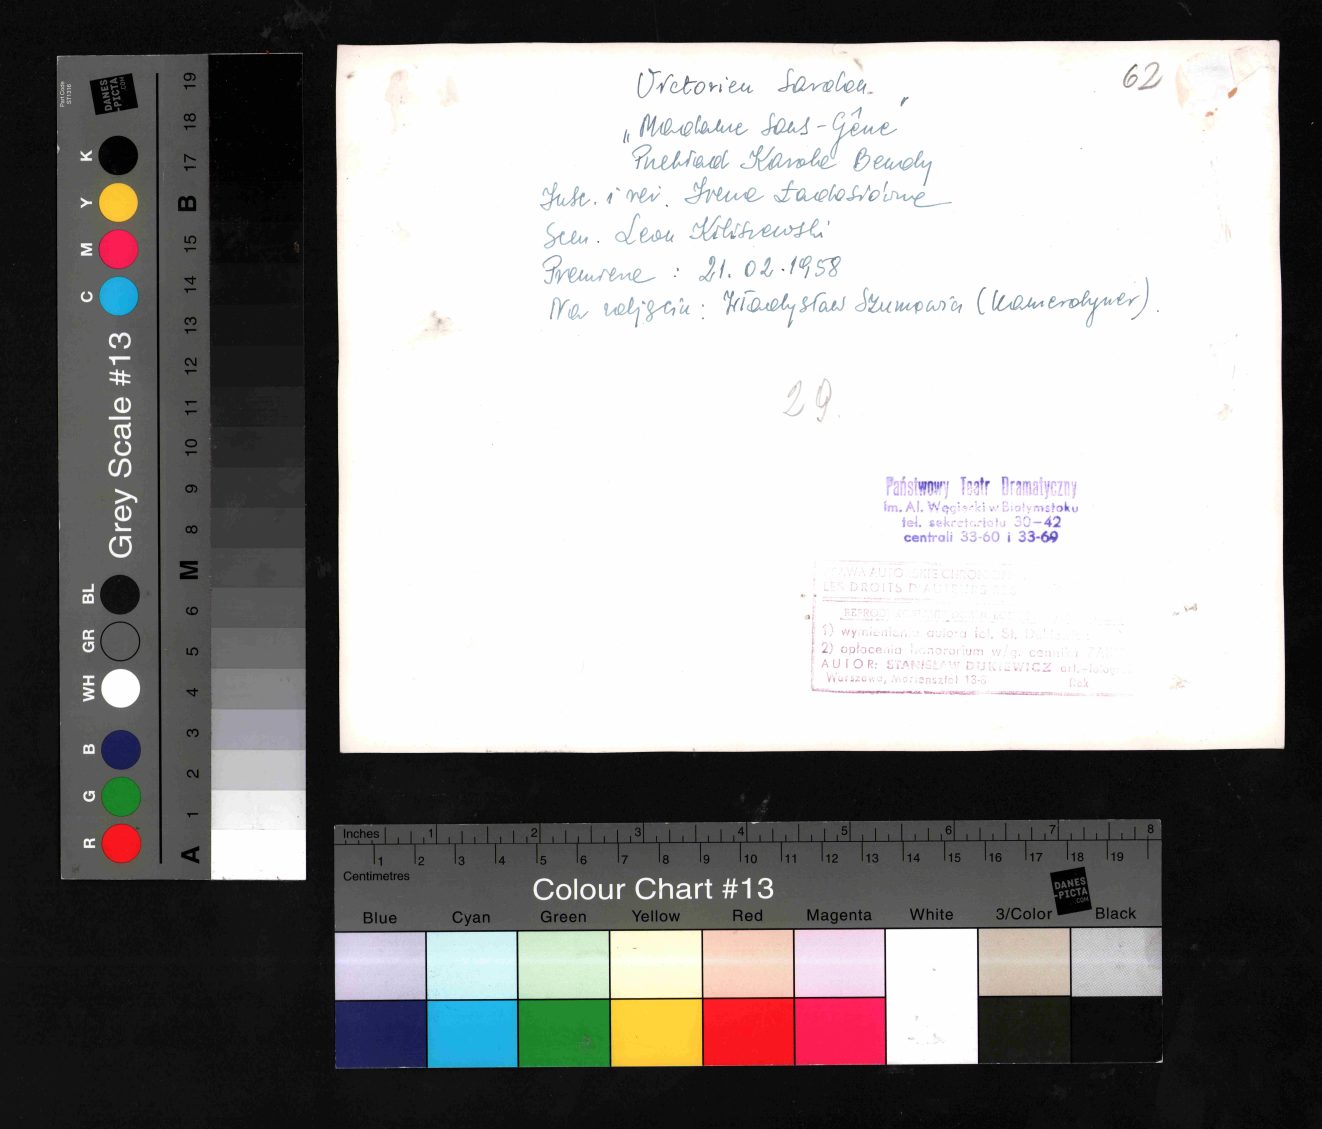 62
Victorien Sardou.
„Madame Sans-Gêne”
Przekład Karola Bendy
Insc. i reż. Irena Ładosiówna
Scen. Leon Kiliszewski
Premiera : 21.02.1958
Na zdjęciu: Władysław Szumowicz (Kamerdyner).
29.
Państwowy Teatr Dramatyczny
im. Al. Węgierki w Białymstoku
tel. sekretariatu 30-42
centrali 33-60 i 33-69
LES DROITS D'AUTEURS
1) wymienienia autora fot. St.
2) opłacenia honorarium w/g. cennika
AUTOR: STANISŁAW DUKIEWICZ art.-fotogr.
Warszawa, Mariensztat 13-6
Rok
Part Code ST1316
DANES -PICTA .COM
Grey Scale #13
K Y M C BL GR WH B G R
19 18 17 B 15 14 13 12 11 10 9 8 M 6 5 4 3 2 1 A
Inches 1 2 3 4 5 6 7 8
1 2 3 4 5 6 7 8 9 10 11 12 13 14 15 16 17 18 19
Centimetres
Colour Chart #13
DANES -PICTA .COM
Blue Cyan Green Yellow Red Magenta White 3/Color Black